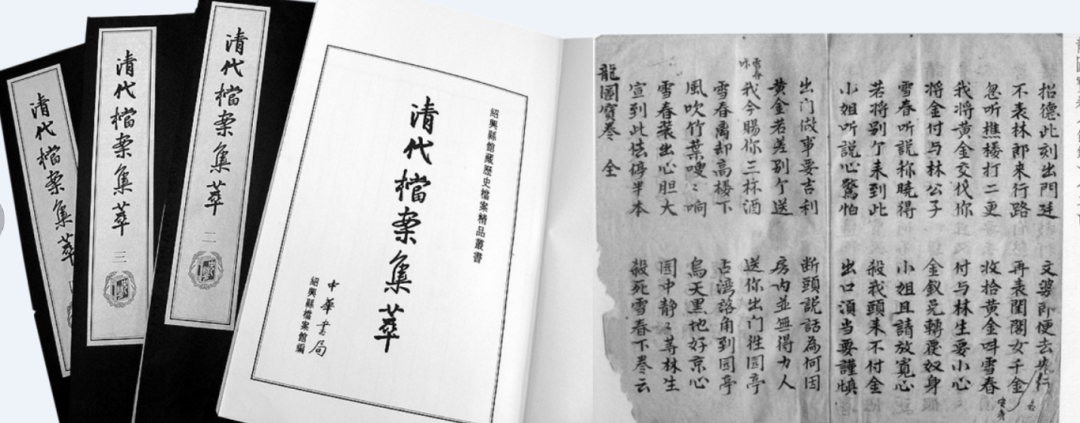 清代檔案集萃
清代檔案集萃
三
清代檔案集萃
二
紹興縣館藏歷史檔案精品叢書
清代檔案集萃
中華書局
紹興縣檔案館編
招德此刻出門廷 文婆即便去行
不表林郎來行路 再表閨閣女千金
忽听樵楼打二更 收拾黃金呌雪春
我將黃金交伐你 付与林生要小心
將金付与林公子 金釵兑轉覆奴身
雪春听說称曉得 小姐且請放寬心
若將别个來到此 殺我頭来不付金
小姐听説心驚怕 出口須当要謹慎
出门做事要吉利 断頭説話為何因
黄金若差别个送 房内並無得力人
我今賜你三杯酒 送你出门往园亭
雪春离却高楼下 占湾路角到园亭
風吹竹葉嗖々响 烏天黑地好京心
雪春葉出心胆大 园中静々等林生
宣到此怯停半本 殺死雪春下卷云
龍圖寶卷 全